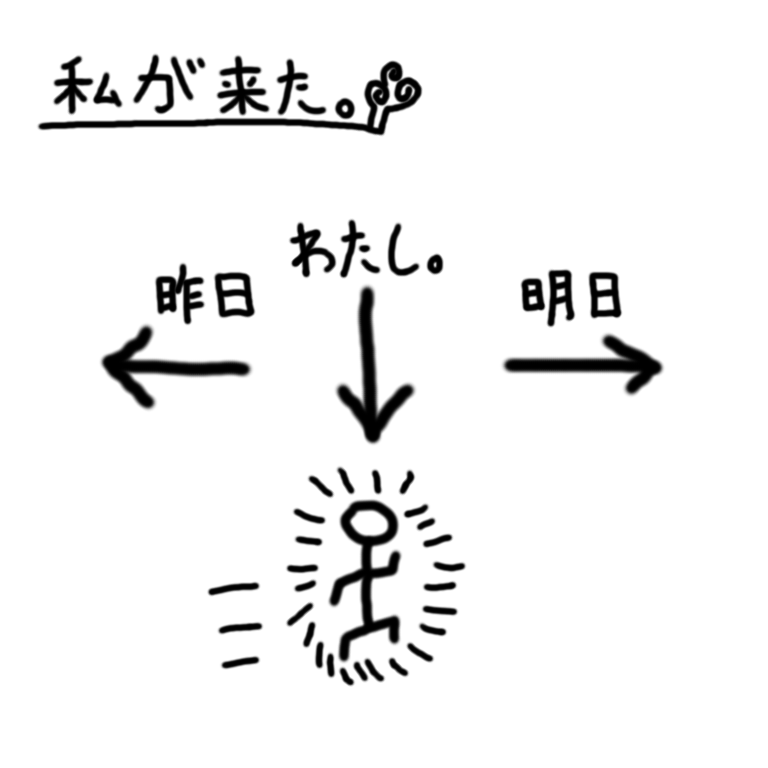 私が来た。
わたし。
昨日
明日